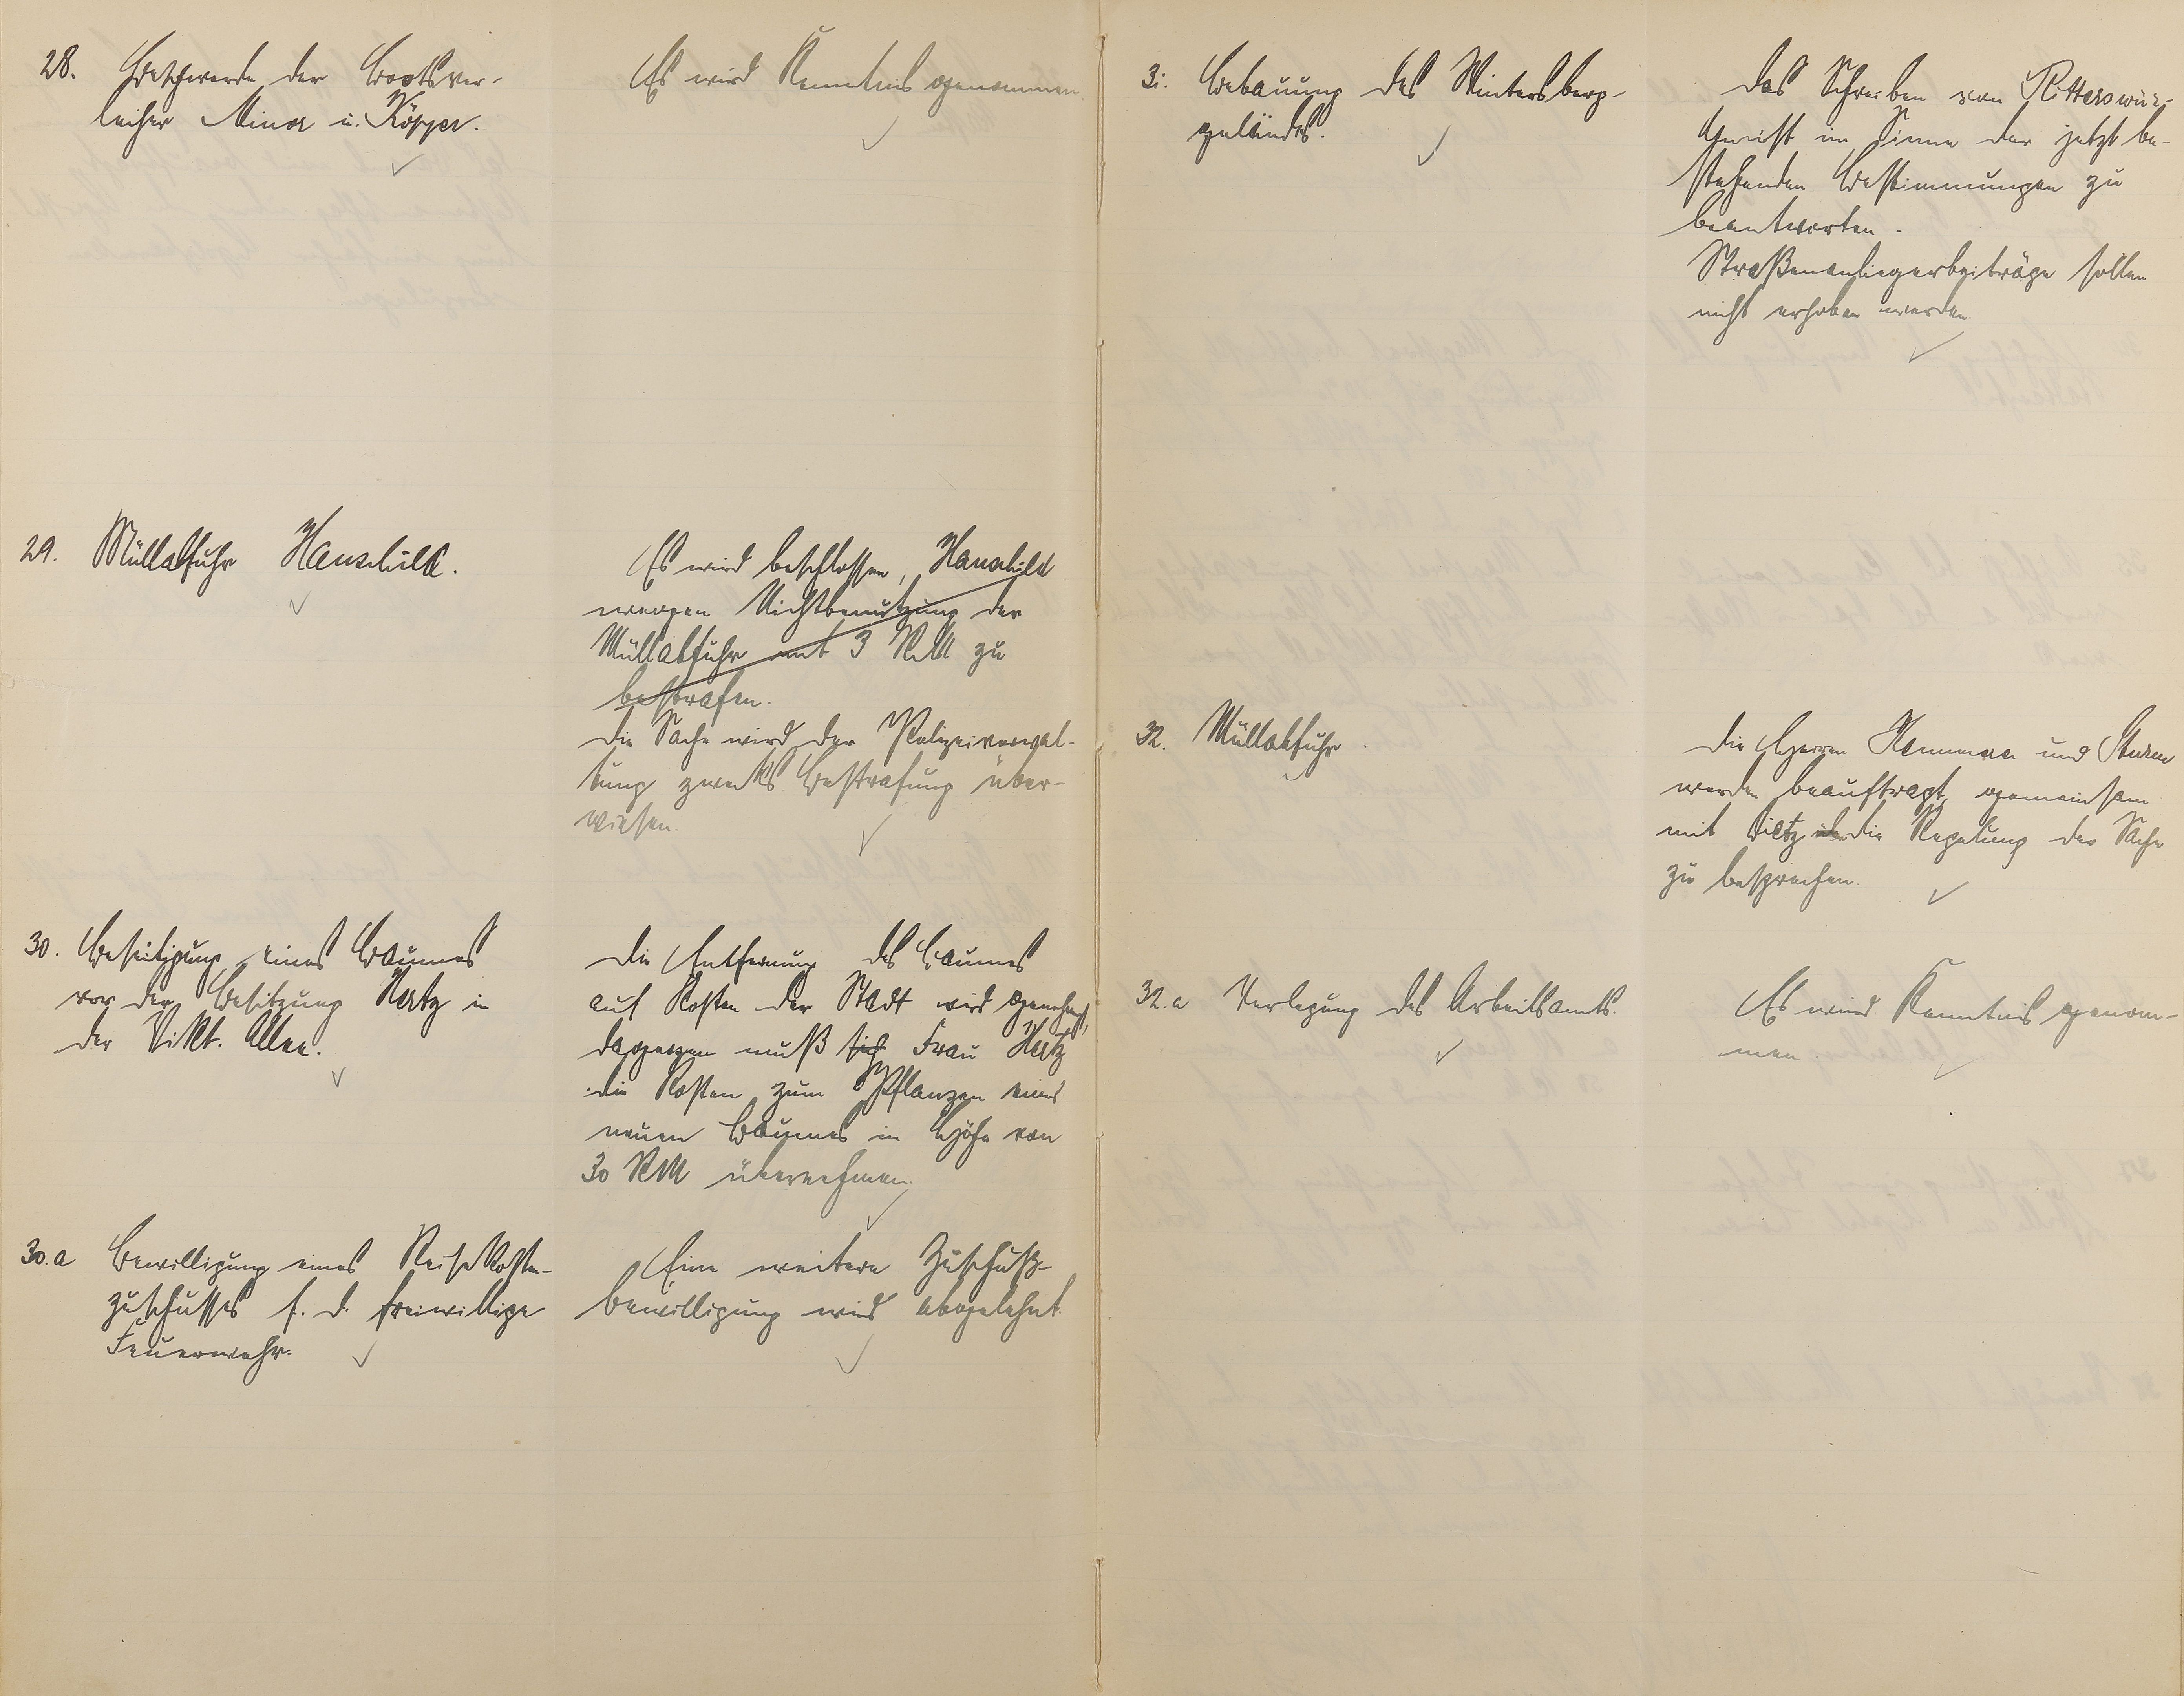 28. Beschwerde der Bootsver-
leiher Minor u. Köpper.
Es wird Kenntnis genommen.
29. Müllabfuhr Hauschild.
Es wird beschlossen, Hauschild
wegen Nichtbenutzung der
Müllabfuhr mit 3 RM zu
bestrafen.
Die Sache wird der Polizeiverwal-
tung zwecks Bestrafung über-
wiesen.
30. Beseitigung eines Baumes
vor der Besitzung Hertz in
der Vikt. Allee.
Die Entfernung des Baumes
auf Kosten der Stadt wird genehmigt,
dagegen muß sich Frau Hertz
die Kosten zum Pflanzen eines
neuen Baumes in Höhe von
30 RM übernehmen.
30.a Bewilligung eines Reisekosten-
zuschusses f. d. freiwillige
Feuerwehr.
Eine weitere Zuschuß-
bewilligung wird abgelehnt.
31. Bebauung des Wintersberg-
geländes.
Das Schreiben von
ist im Sinne der jetzt be-
stehenden Bestimmungen zu
beantworten.
Straßenanliegerbeiträge sollen
nicht erhoben werden.
32. Müllabfuhr.
Die Herren und Sturm
werden beauftragt, gemeinsam
mit Dietz die Regelung der Sache
zu besprechen.
32.a Verlegung des Arbeitsamts.
Es wird Kenntnis genom-
men.